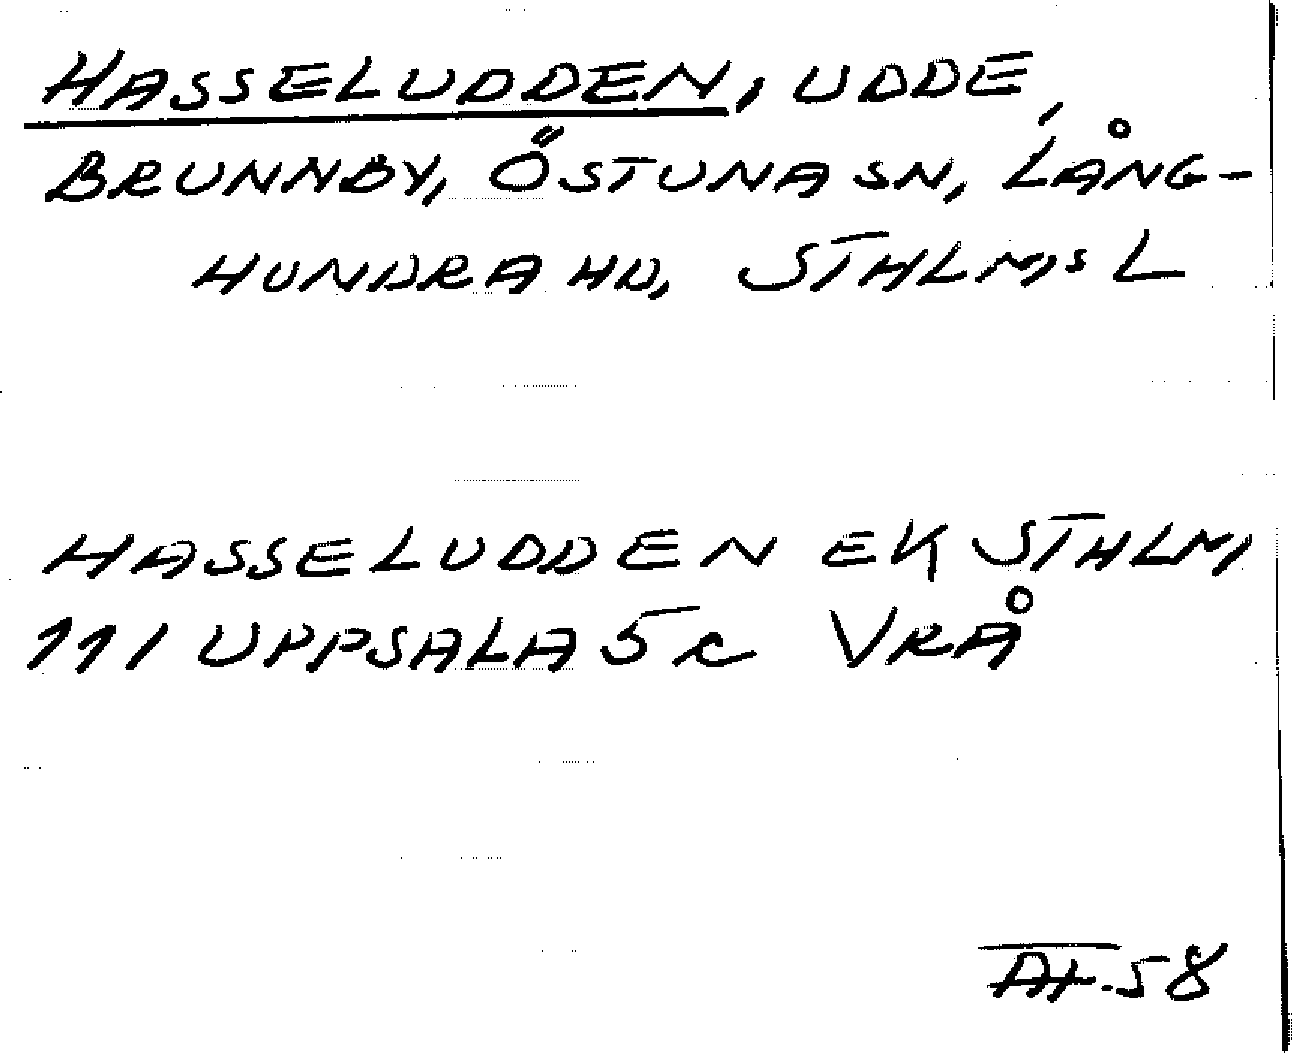 HASSELUDDEN, UDDE,
BRUNNBY, ÖSTUNA SN, LÅNG-
HUNDRA HD, STHLMS L
HASSELUDDEN EK STHLM
111 UPPSALA 5c VRÅ
58